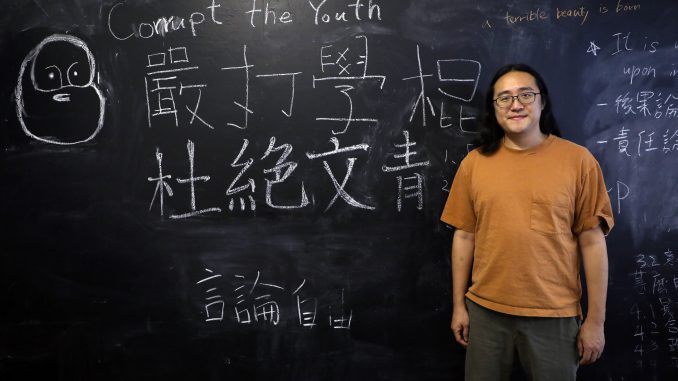 Corrupt the Youth
a terrible beauty is born
嚴打學棍
杜絕文青
言論自由
It is
upon in
一後果論
一責任論